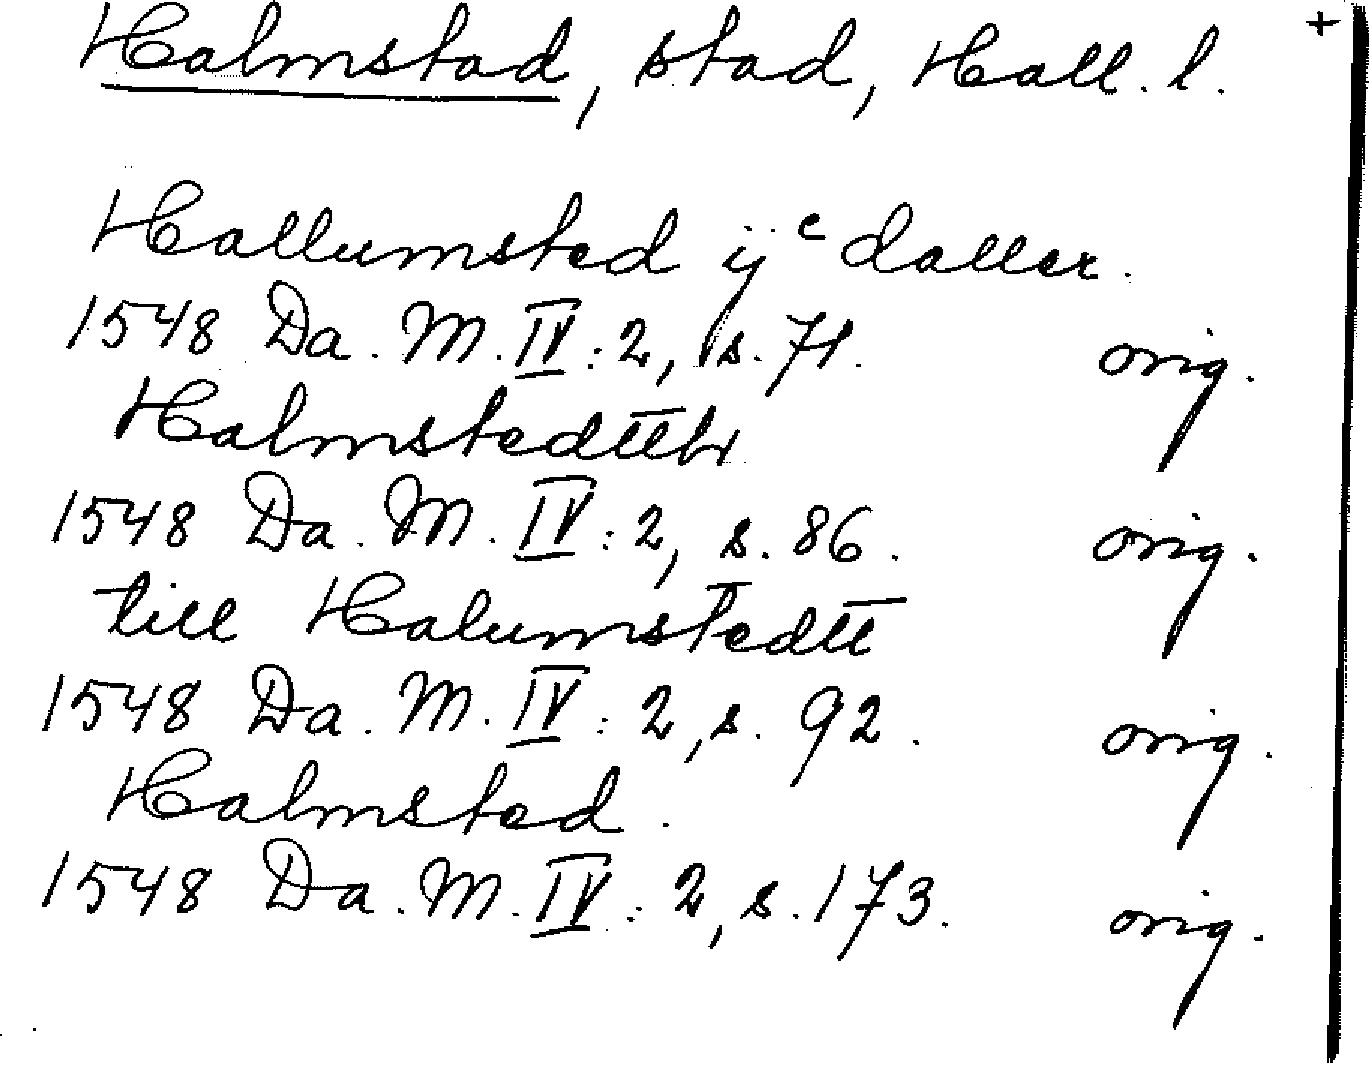 Halmstad, stad, Hall. l. +
Hallumsted ijᶜ daller.
1548 Da. M. IV: 2, s. 71. orig.
1548 Da. M. IV: 2, s. 86. orig.
till Halumstedtt
1548 Da. M. IV: 2, s. 92. orig.
Halmsted.
1548 Da. M. IV: 2, s. 173. orig.